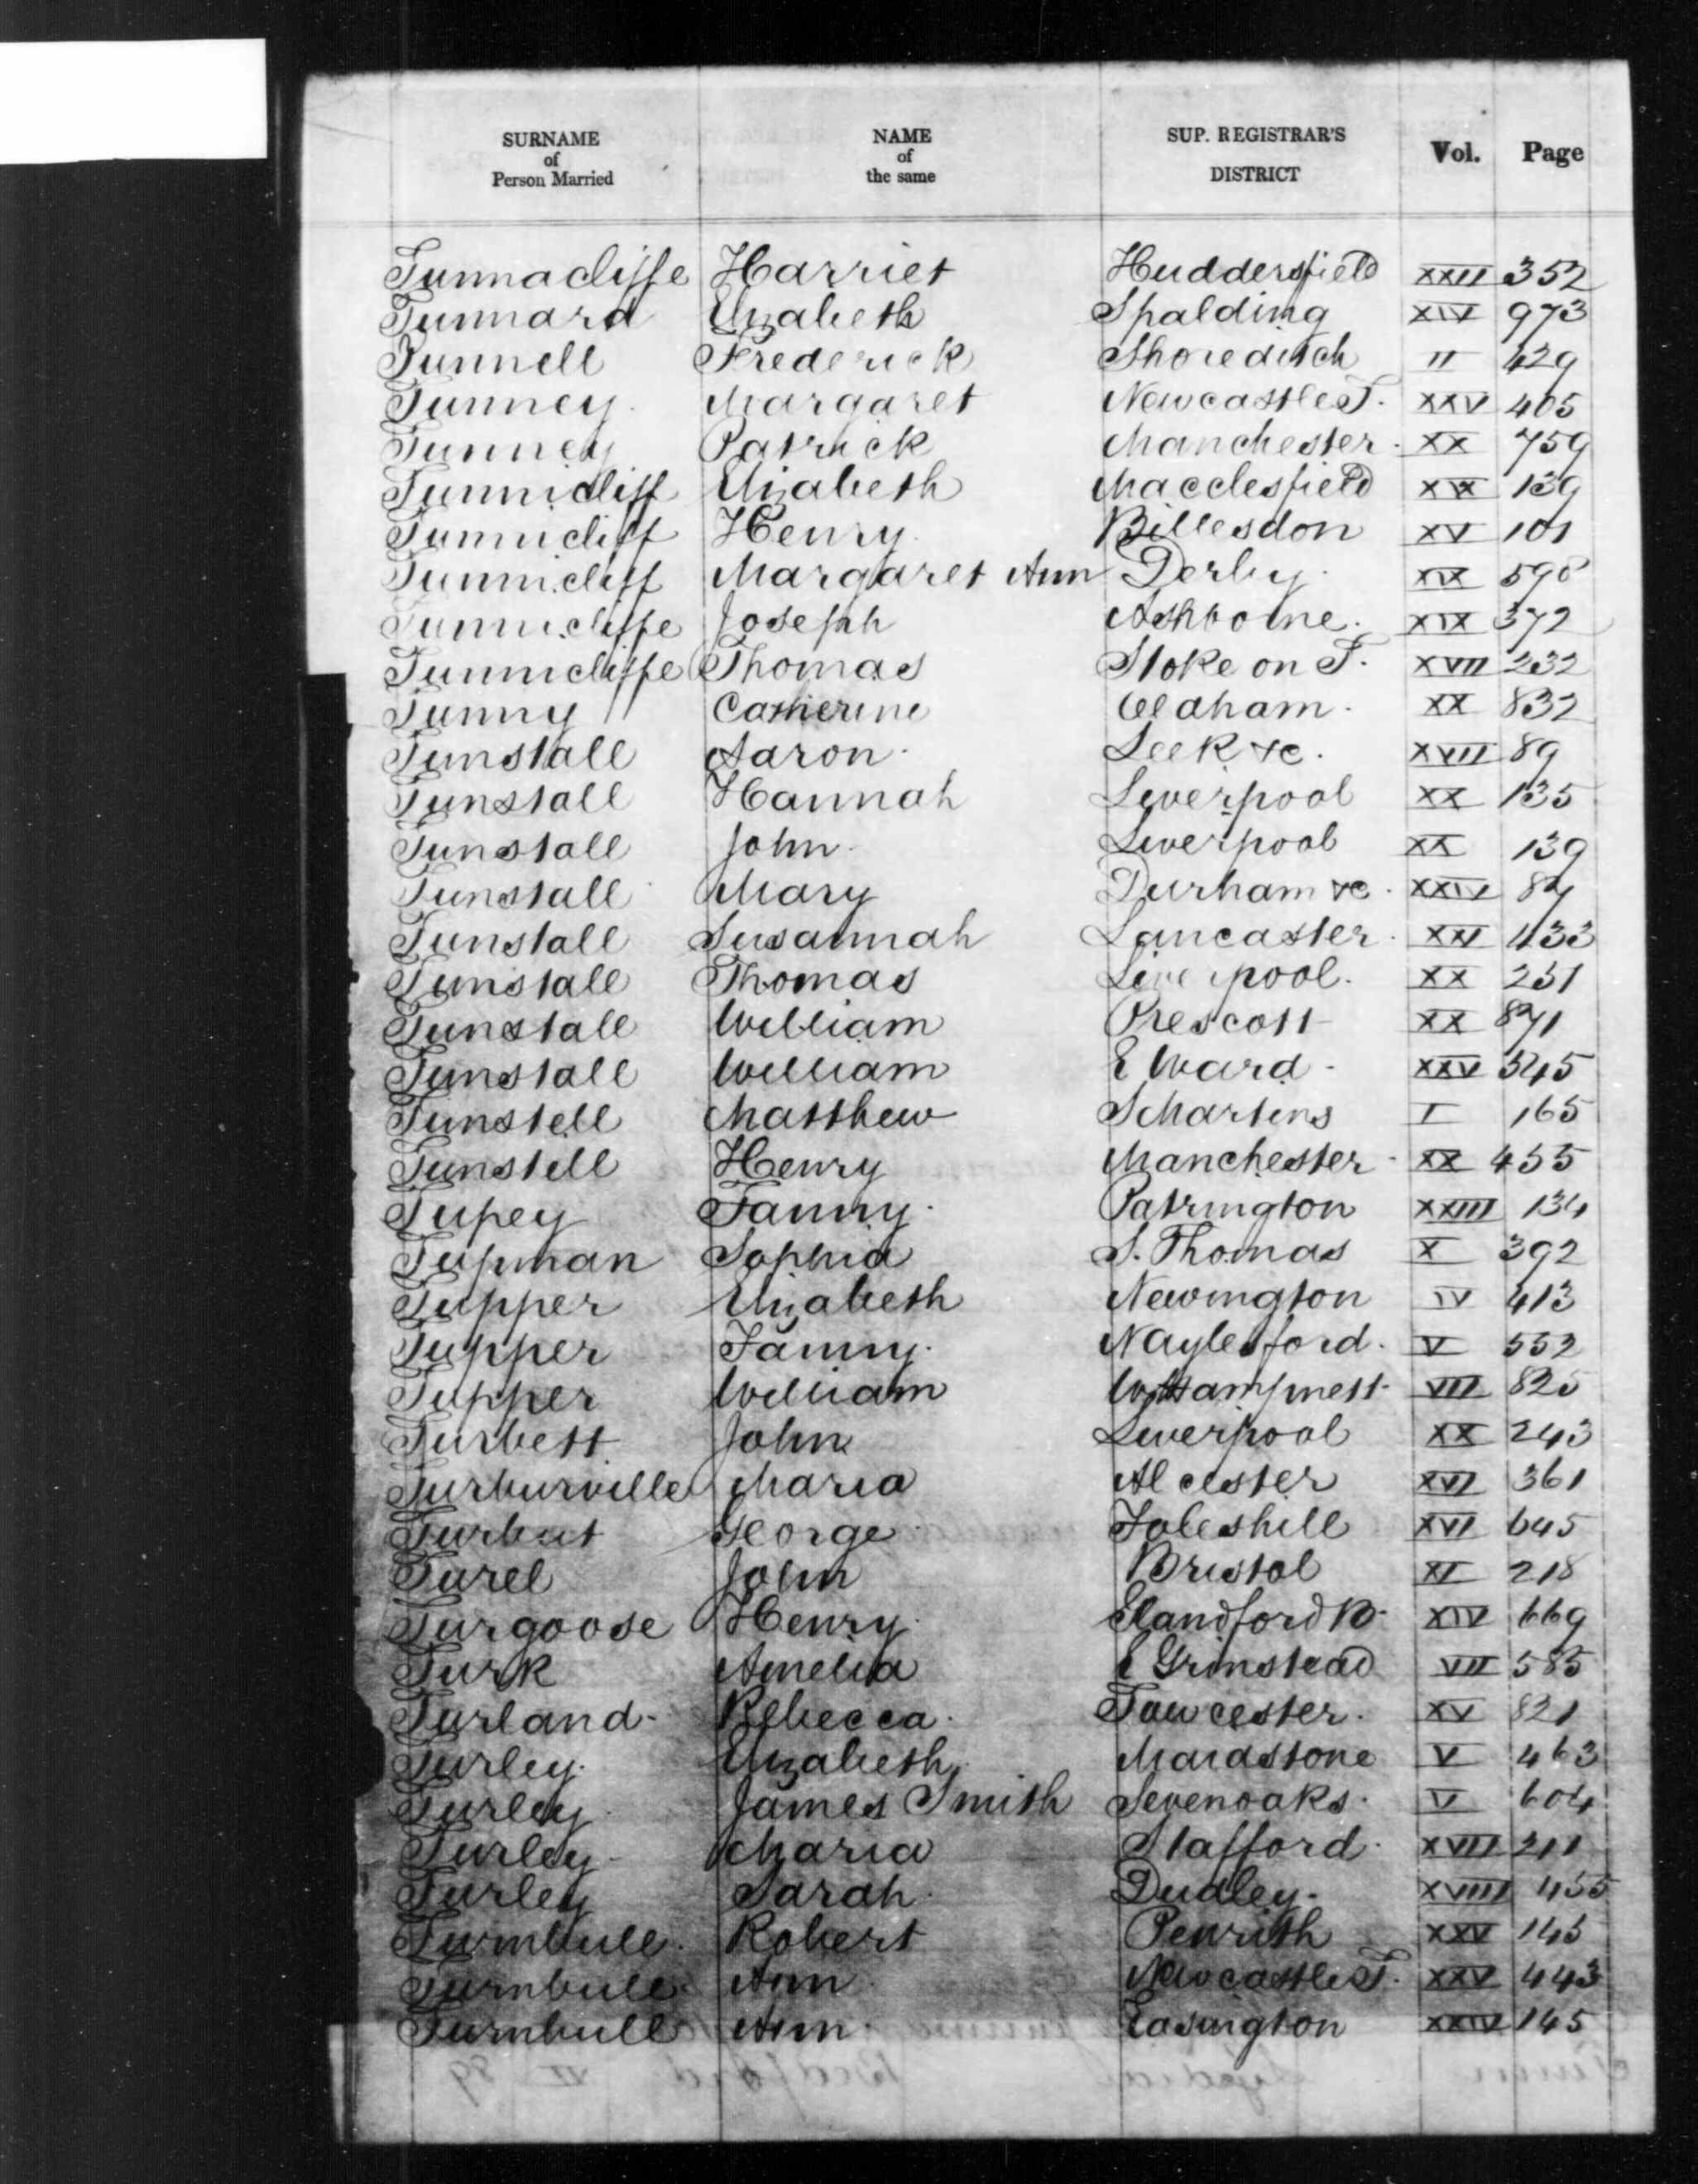 SURNAME of Person Married NAME of the same SUP. REGISTRAR'S DISTRICT Vol. Page
Tunnacliffe Harriet Huddersfield XXII 352
Tunnard Elizabeth Spalding XIV 973
Tunnell Frederick Shoreditch II 429
Tunney Margaret Newcastle T. XXV 405
Tunney Patrick Manchester XX 759
Tunnicliff Elizabeth Macclesfield XIX 139
Tunnicliff Henry Billesdon XV 101
Tunnicliff Margaret Ann Derby XIX 598
Tunnicliffe Joseph Ashborne XIX 372
Tunnicliffe Thomas Stoke on T. XVII 232
Tunny Catherine Oldham XX 832
Tunstall Aaron Leek &c. XVII 89
Tunstall Hannah Liverpool XX 135
Tunstall John Liverpool XX 139
Tunstall Mary Durham &c XXIV 84
Tunstall Susannah Lancaster XXI 433
Tunstall Thomas Liverpool XX 251
Tunstall William Prescott XX 871
Tunstall William E Ward XXV 345
Tunstell Matthew S Martins I 165
Tunstill Henry Manchester XX 455
Tupey Fanny Patrington XXIII 134
Tupman Sophia S. Thomas X 392
Tupper Elizabeth Newington IV 413
Tupper Fanny N Aylesford V 552
Tupper William VII 825
Turbett John Liverpool XX 243
Turburville Maria Alcester XVI 361
Turbut George Foleshill XVI 645
Turel John Bristol XI 218
Turgoose Henry Glandford B XIV 669
Turk Amelia E Grinstead VII 585
Turland Rebecca Towcester XV 821
Turley Elizabeth Maidstone V 463
Turley James Smith Sevenoaks V 604
Turley Maria Stafford XVII 211
Turley Sarah Dudley XVIII 455
Turnbull Robert Penrith XXV 145
Turnbull Ann Newcastle T. XXV 443
Turnbull Ann Easington XXIV 145